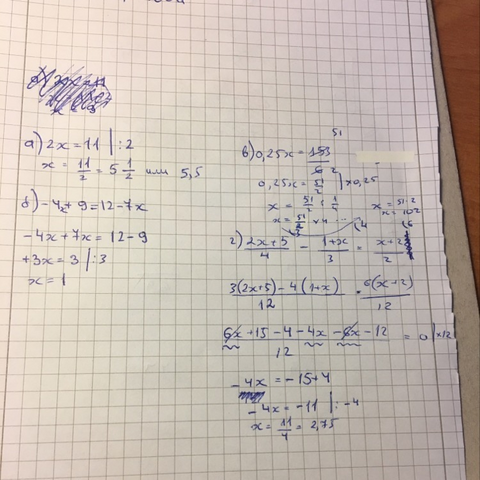 а) 2x = 11 | :2
x = 11/2 = 5 1/2 или 5,5
б) -4x + 9 = 12 - 7x
-4x + 7x = 12 - 9
+3x = 3 | :3
x = 1
51
в) 0,25x = 153/6 2
0,25x = 51/2 | x 0,25
x = 51/2 : 1/4
x = 51·2
x = 102
г) 2x+5/4 - 1+x/3 = x+2/2
3(2x+5) - 4(1+x)/12 = 6(x+2)/12
6x + 15 - 4 - 4x - 6x - 12/12 = 0 | x12
-4x = -15 + 4
-4x = -11 | : -4
x = 11/4 = 2,75